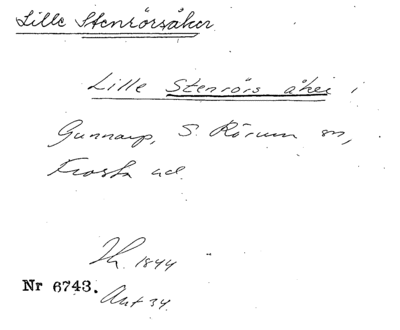 Lille Stenrörsåker
Lille Stenrörs åker i
Gunnarp, S. Rörum sn,
Frosta hd.
1844
Nr 6743.
Akt 34.